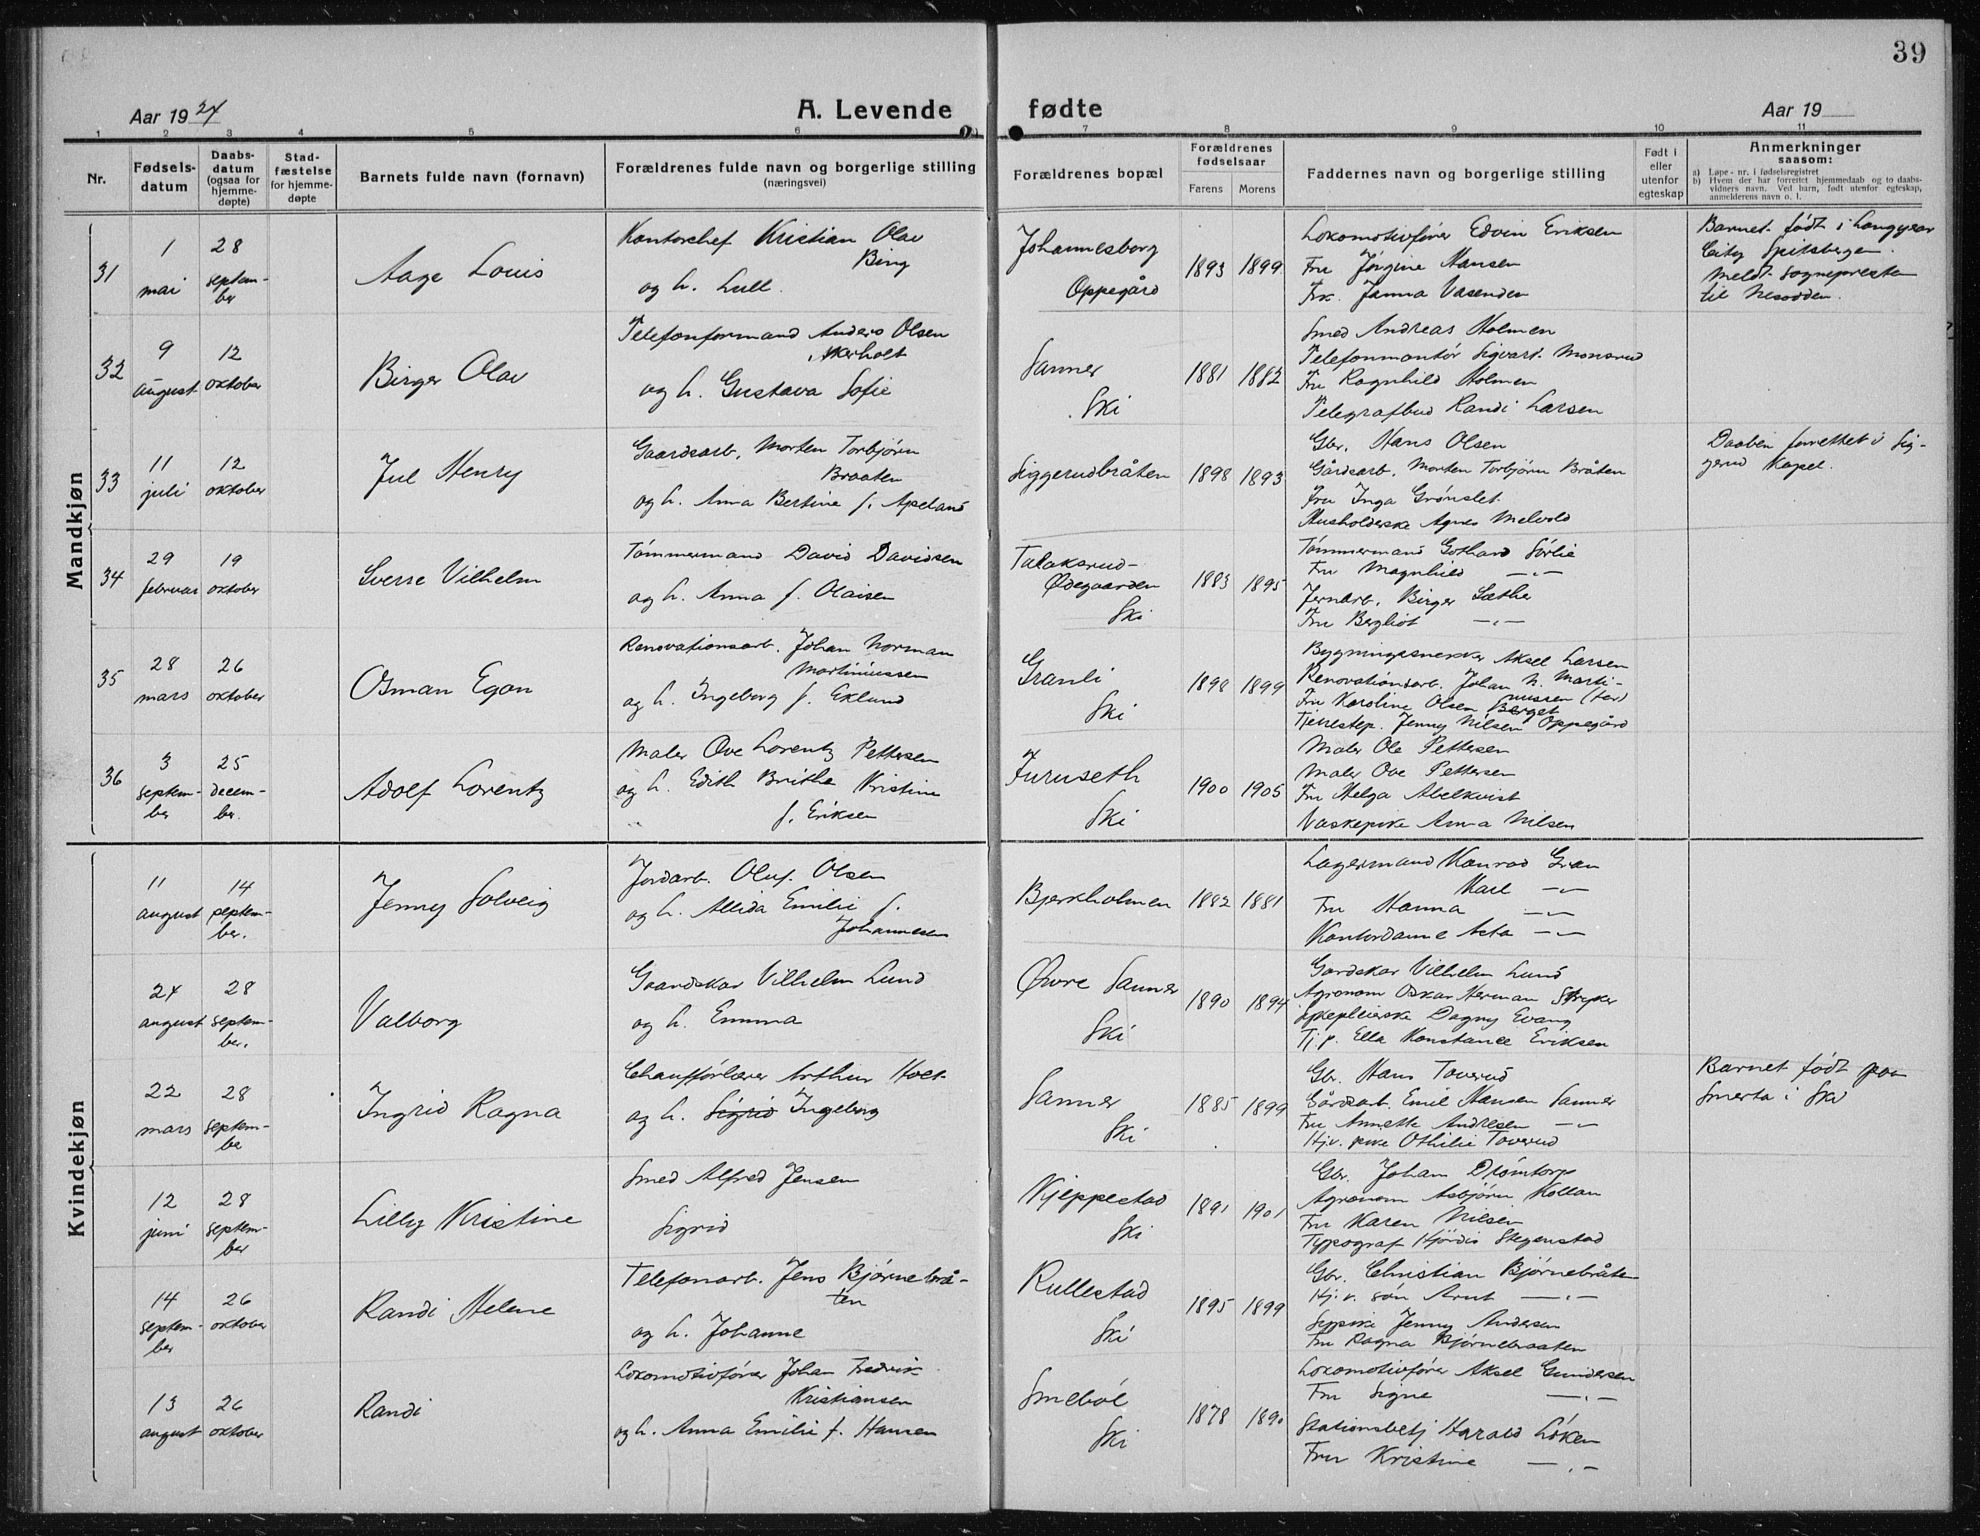 39
Aar 1924
A. Levende fødte
Aar 19
1 2 3 4 5 6 7 8 9 10 11
Nr.
Fødsels-
datum
Daabs-
datum
(ogsaa for
hjemme-
døpte)
Stad-
fæstelse
for hjemme-
døpte
Barnets fulde navn (fornavn)
Forældrenes fulde navn og borgerlige stilling
(næringsvei)
Forældrenes bopæl
Forældrenes
fødselsaar
Farens Morens
Faddernes navn og borgerlige stilling
Født i
eller
utenfor
egteskap
Anmerkninger
saasom:
a) Løpe-nr. i fødselsregistret
b) Hvem der har forrettet hjemmedaab og to daabs-
vidners navn. Ved barn, født utenfor egteskap,
anmelderens navn o. l.
Mandkjøn
31
1
mai
28
septem-
ber
Aage Louis
Kontorchef Kristian Olav
Bing
og h. Lull.
Johannesborg
Oppegård
1893 1899
Lokomotivfører Edvin Eriksen
Fru Jørgine Hansen
Frk. Janna Vasenden
Barnet født i Longyear
City Spitsbergen.
Meldt sognepresten
til Nesodden.
32
9
august
12
oktober
Birger Olav
Telefonformand Anders Olsen
Akerholt
og h. Gustava Sofie
Sanner
Ski
1881 1882
Smed Andreas Holmen
Telefonmontør Sigvart Monsrud
Fru Ragnhild Holmen
Telegrafbud Randi Larsen
33
11
juli
12
oktober
Jul Henry
Gaardsarb. Morten Torbjørn
Braaten
og h. Anna Bertine f. Apeland
Siggerudbråten
1898 1893
Gbr. Hans Olsen
Gårdsarb. Morten Torbjørn Bråten
Fru Inga Grønslet
Husholderske Agnes Melvold
Daaben forrettet i Sig-
gerud Kapel.
34
29
februar
19
oktober
Sverre Vilhelm
Tømmermand David Davidsen
og h. Anna f. Olaisen
Talaksrud-
Ødegaarden
Ski
1883 1895
Tømmermand Gothard Sørlie
Fru Magnhild —"—
Jernarb. Birger Sæther
Fru Bergliot —"—
35
28
mars
26
oktober
Osman Egon
Renovationsarb. Johan Norman
Martinussen
og h. Ingeborg f. Eklund
Granli
Ski
1898 1899
Bygningssnekker Aksel Larsen
Renovationsarb. Johan N. Marti-
nussen (far)
Fru Karoline Olsen Berget
Tjenestep. Jenny Nilsen Oppegård
36
3
septem-
ber
25
decem-
ber.
Adolf Lorentz
Maler Ove Lorentz Pettersen
og h. Edith Brithe Kristine
f. Eriksen
Furuseth
Ski
1900 1905
Maler Ole Pettersen
Maler Ove Pettersen
Fru Helga Abelkvist
Vaskepike Anna Nilsen
Kvindekjøn
11
august
14
septem-
ber.
Jenny Solveig
Jordarb. Oluf Olsen
og h. Allida Emilie f.
Johannesen
Bjerkholmen
1882 1881
Lagermand Konrad Gran
Karl —"—
Fru Hanna —"—
Kontordame Asta —"—
24
august
28
septem-
ber.
Valborg
Gaardskar Vilhelm Lund
og h. Emma
Øvre Sanner
Ski
1890 1894
Gardskar Vilhelm Lund
Agronom Oskar Herman
Sykepleierske Dagny Evang
Tj.p. Ella Konstance Eriksen
22
mars
28
septem-
ber
Ingrid Ragna
Chaufførlærer Arthur Holt
og h. Sigrid Ingeborg
Sanner
Ski
1885 1899
Gbr. Hans Taverud
Gårdsarb. Emil Hansen Sanner
Fru Annette Andresen —"—
Hjv. pike Othilie Taverud
Barnet født paa
Smerta i Ski
12
juni
28
septem-
ber
Lilly Kristine
Smed Alfred Jensen
Sigrid
Kjeppestad
Ski
1891 1901
Gbr. Johan Drømtorp
Agronom Asbjørn Kollan
Fru Karen Nilsen
Typograf Hjørdis Stegenstad
14
septem-
ber
26
oktober
Randi Helene
Telefonarb. Jens Bjørnebrå-
ten
og h. Johanne
Rullestad
Ski
1895 1899
Gbr. Christian Bjørnebråten
Hj.v. søn Arnt —"—
Sypike Jenny Andersen
Fru Ragna Bjørnebraaten
13
august
26
oktober
Randi
Lokomotivfører Johan Fredrik
Kristiansen
og h. Anna Emilie f. Hansen
Smebøl
Ski
1878 1890
Lokomotivfører Aksel Gundersen
Fru Signe —"—
Stationsbetj Harald Løken
Fru Kristine —"—